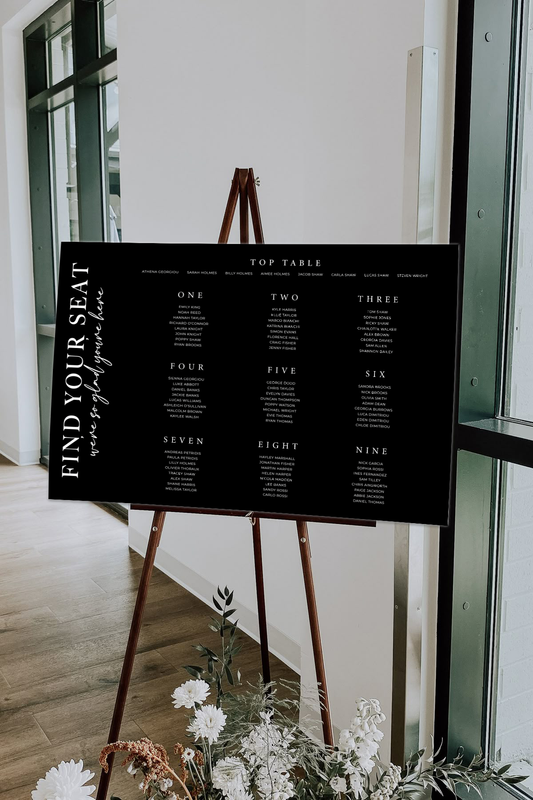 FIND YOUR SEAT
we're so glad you're here
TOP TABLE
ATHENA GEORGIOU SARAH HOLMES BILLY HOLMES AIMEE HOLMES JACOB SHAW CARLA SHAW LUCAS SHAW STEVEN WRIGHT
ONE
EMILY KING
NOAH REED
HANNAH TAYLOR
RICHARD O'CONNOR
LAURA KNIGHT
JOHN KNIGHT
POPPY SHAW
RYAN BROOKS
TWO
KYLE HARRIS
ALLIE TAYLOR
MARCO BIANCHI
KATRINA BIANCHI
SIMON EVANS
FLORENCE HALL
CRAIG FISHER
JENNY FISHER
THREE
TOM SHAW
SOPHIE JONES
RICKY SHAW
CHARLOTTE WALKER
ALEX BROWN
GEORGIA DAVIES
SAM ALLEN
SHANNON BAILEY
FOUR
SIENNA GEORGIOU
LUKE ABBOTT
DANIEL BANKS
JACKIE BANKS
LUCAS WILLIAMS
ASHLEIGH O'SULLIVAN
MALCOLM BROWN
KAYLEE WALSH
FIVE
GEORGE DODD
CHRIS TAYLOR
EVELYN DAVIES
DUNCAN THOMPSON
POPPY WATSON
MICHAEL WRIGHT
EVIE THOMAS
RYAN THOMAS
SIX
SANDRA BROOKS
NICK BROOKS
OLIVIA SMITH
ADAM DEAN
GEORGIA BURROWS
LUCA DIMITRIOU
EDEN DIMITRIOU
CHLOE DIMITRIOU
SEVEN
ANDREAS PETRIDIS
PAULA PETRICKS
LILLY HOLMES
OLIVIER THOBAUX
TRACEY SHAW
ALEX SHAW
SHANE HARRIS
MELISSA TAYLOR
EIGHT
HAYLEY MARSHALL
JONATHAN FISHER
MARTIN HARPER
HELEN HARPER
NICOLA MADDEN
LEE BANKS
SANDY ROSSI
CARLO ROSSI
NINE
NICK GARCIA
SOPHIA ROSSI
INES FERNANDEZ
SAM TILLEY
CHRIS AINSWORTH
PAIGE JACKSON
ABBIE JACKSON
DANIEL THOMAS